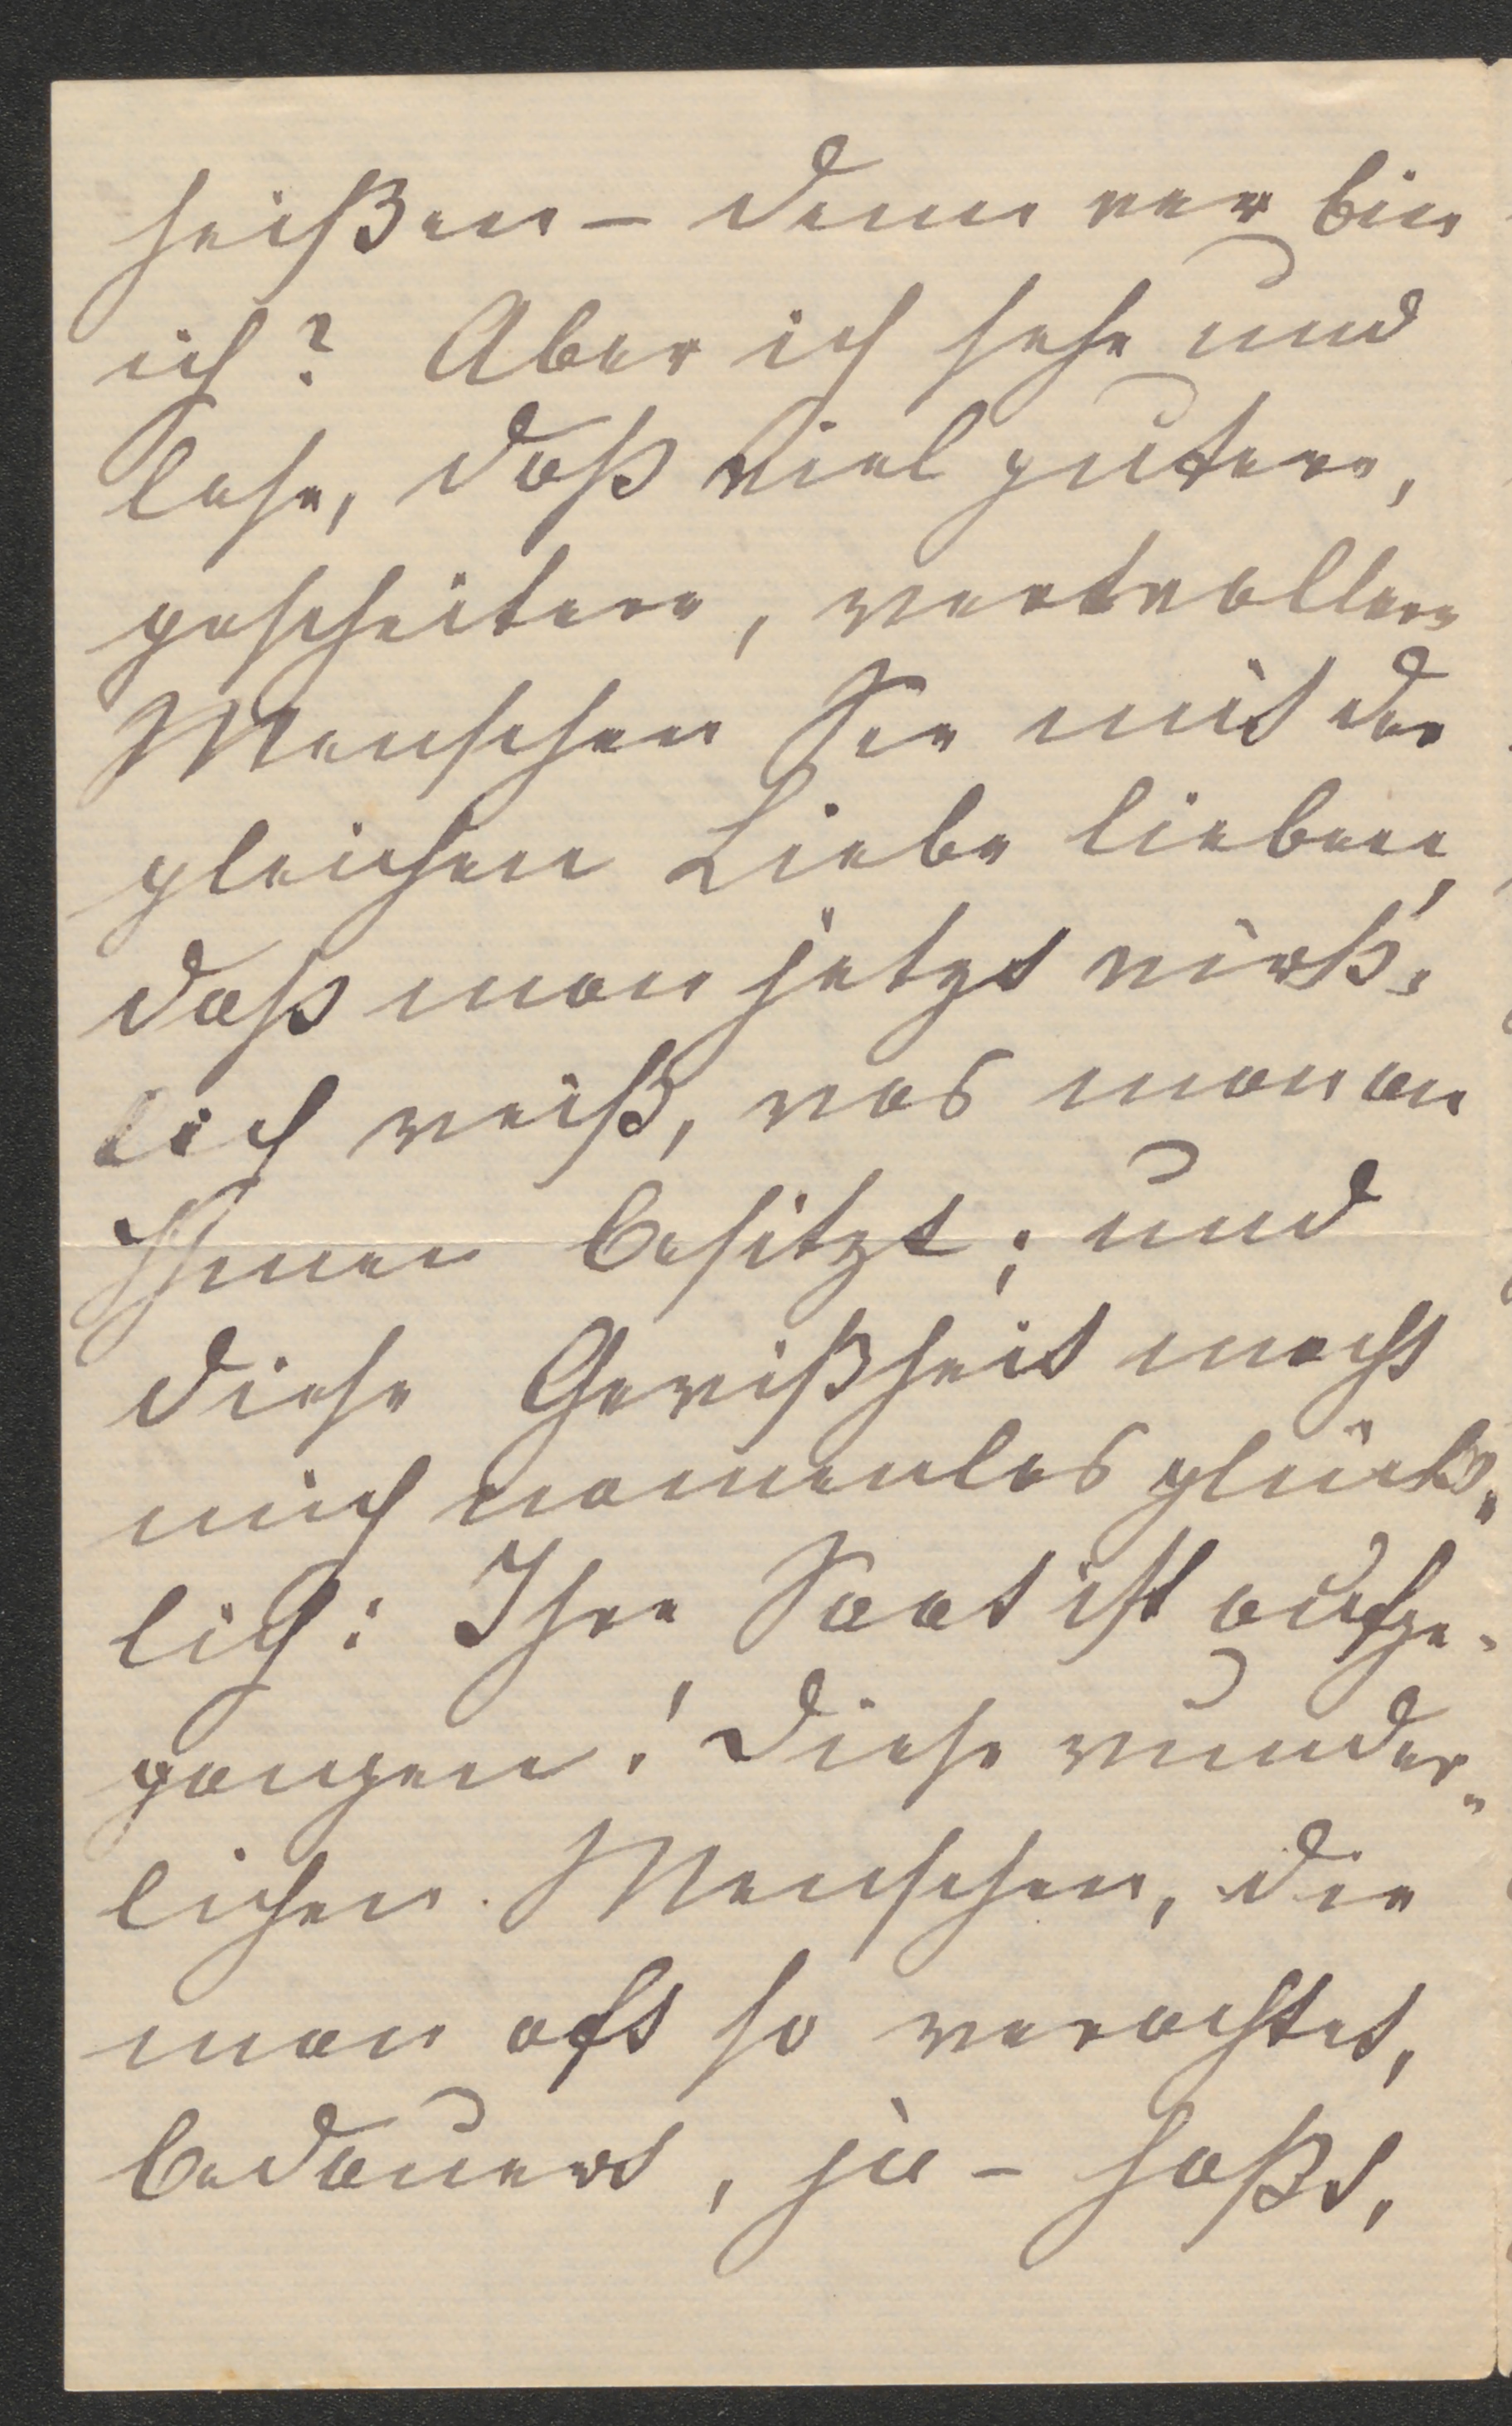 heißen – denn wer bin
ich? Aber ich sehe und
lese, daß viel gutere,
gescheitere, wertvollere
Menschen Sie mit der
gleichen Liebe lieben,
daß man jetzt wirk-
lich weiß, was man an
Ihnen besitzt; und
diese Gewißheit macht
mich namenlos glück-
lich: Ihre Saat ist aufge-
gangen! Diese wunder-
lichen Menschen, die
man oft so verachtet,
bedauert, ja – haßt,